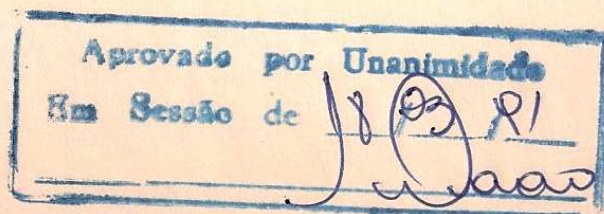 Aprovado por Unanimidade
Em Sessão de 18/03/81